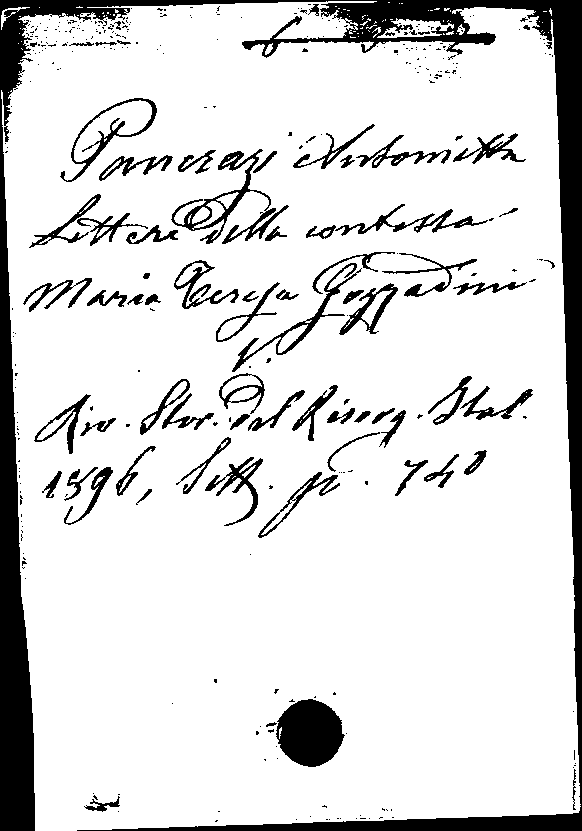 6. 5. 2
Pancrazi Antonietta
Lettere della contessa
Maria Teresa Gozzadini
V.
Riv. Stor. del Risorg. Ital.
1896, Sett. p. 740